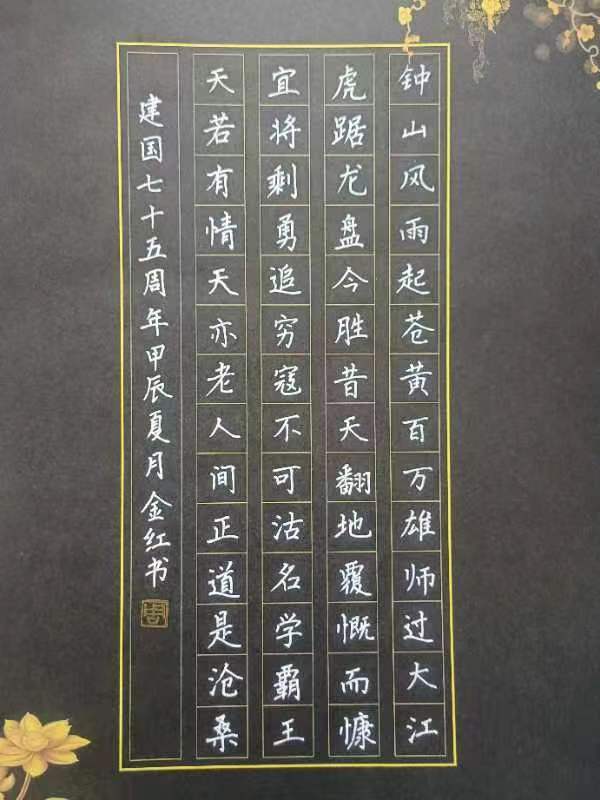 钟山风雨起苍黄百万雄师过大江
虎踞龙盘今胜昔天翻地覆慨而慷
宜将剩勇追穷寇不可沽名学霸王
天若有情天亦老人间正道是沧桑
建国七十五周年甲辰夏月金红书
周